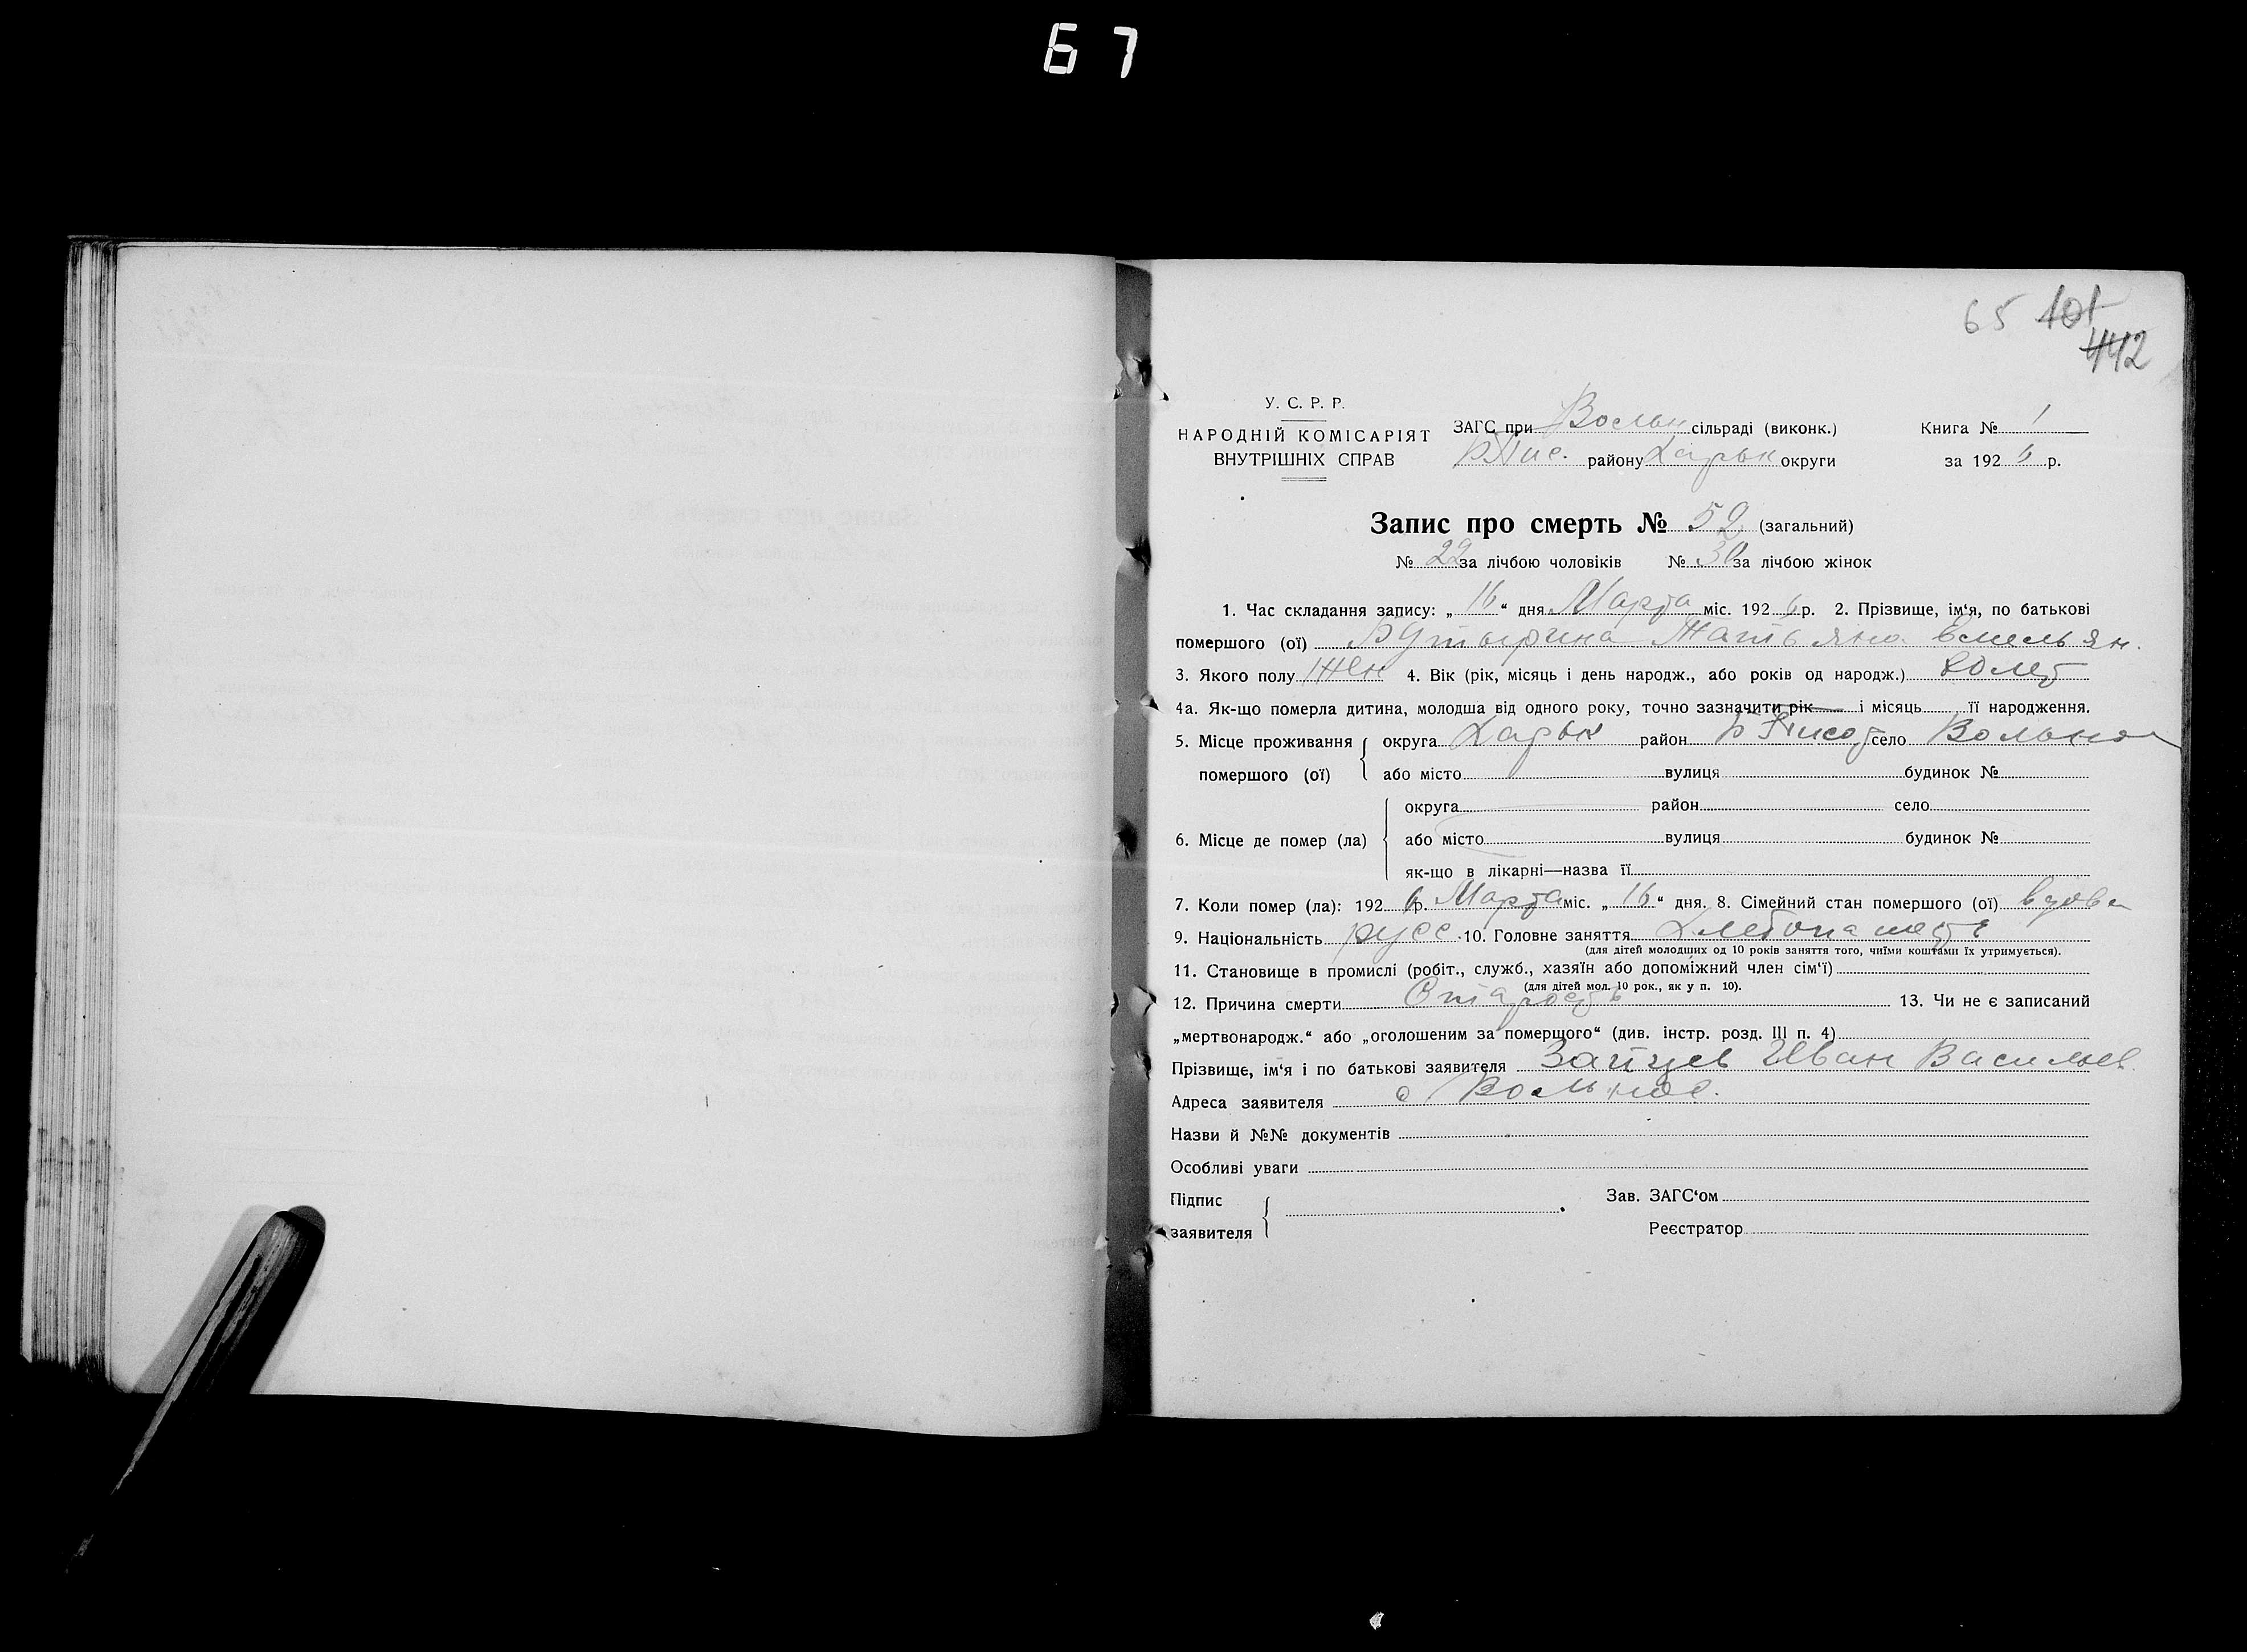 67
65 101
442
У. С. Р. Р.
НАРОДНІЙ КОМІСАРІЯТ
ВНУТРІШНІХ СПРАВ
ЗАГС при Вольн сільраді (виконк.)
Б Пис. району Харьк округи
Книга № 1
за 1926 р.
Запис про смерть № 52 (загальний)
№ 22 за лічбою чоловіків № 30 за лічбою жінок
1. Час складання запису: „16“ дня Марта міс. 1926 р. 2. Прізвище, ім‘я, по батькові
помершого (ої) Бутырина Татьяна Емельян.
3. Якого полу Жен 4. Вік (рік, місяць і день народж., або років од народж.) 80 лет
4а. Як-що померла дитина, молодша від одного року, точно зазначити рік і місяць її народження.
5. Місце проживання помершого (ої) { округа Харьк район Б Писар село Вольное
або місто вулиця будинок №
6. Місце де помер (ла) { округа район село
або місто вулиця будинок №
як-що в лікарні—назва її
7. Коли помер (ла): 1926 р. Марта міс. „16“ дня. 8. Сімейний стан помершого (ої) вдова
9. Національність русс. 10. Головне заняття Хлебопашест
(для дітей молодших од 10 років заняття того, чиїми коштами їх утримується).
11. Становище в промислі (робіт., служб., хазяїн або допоміжний член сім‘ї)
(для дітей мол. 10 рок., як у п. 10).
12. Причина смерти Старость 13. Чи не є записаний
„мертвонародж.“ або „оголошеним за помершого“ (див. інстр. розд. III п. 4)
Прізвище, ім‘я і по батькові заявителя Зайцев Иван Васильев.
Адреса заявителя с Вольное.
Назви й №№ документів
Особливі уваги
Підпис заявителя {
Зав. ЗАГС‘ом
Реєстратор